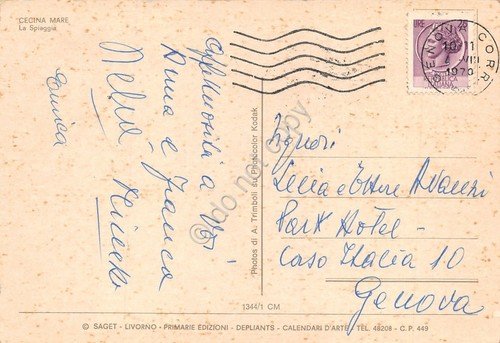 CECINA MARE
La Spiaggia
Affettuosità a Voi
Anna e Franca
Enrica
Photos di A. Trimboli su Photocolor Kodak
do not copy
LIRE 25
GENOVA CORR
10-11
VIII
1970
Signori
Lucia e Ettore Avanzi
Park Hotel -
Corso Italia 10
Genova
1344/1 CM
© SAGET - LIVORNO - PRIMARIE EDIZIONI - DEPLIANTS - CALENDARI D'ARTE TEL. 48208 - C.P. 449